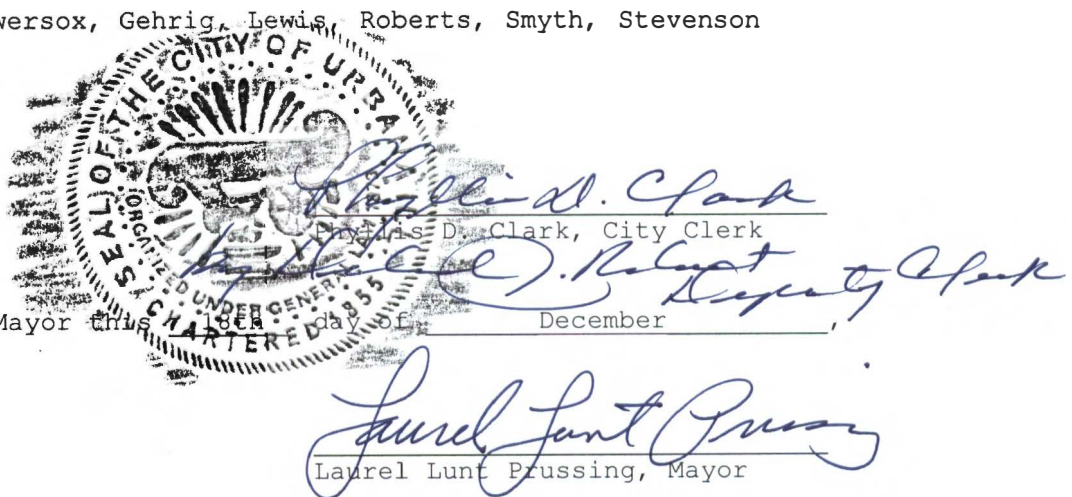 wersox, Gehrig, Lewis, Roberts, Smyth, Stevenson
SEAL OF THE CITY OF URBANA
CHARTERED 1855
Phyllis D. Clark
Phyllis D. Clark, City Clerk
Deputy Clerk
Mayor this 18th day of December,
Laurel Lunt Prussing
Laurel Lunt Prussing, Mayor